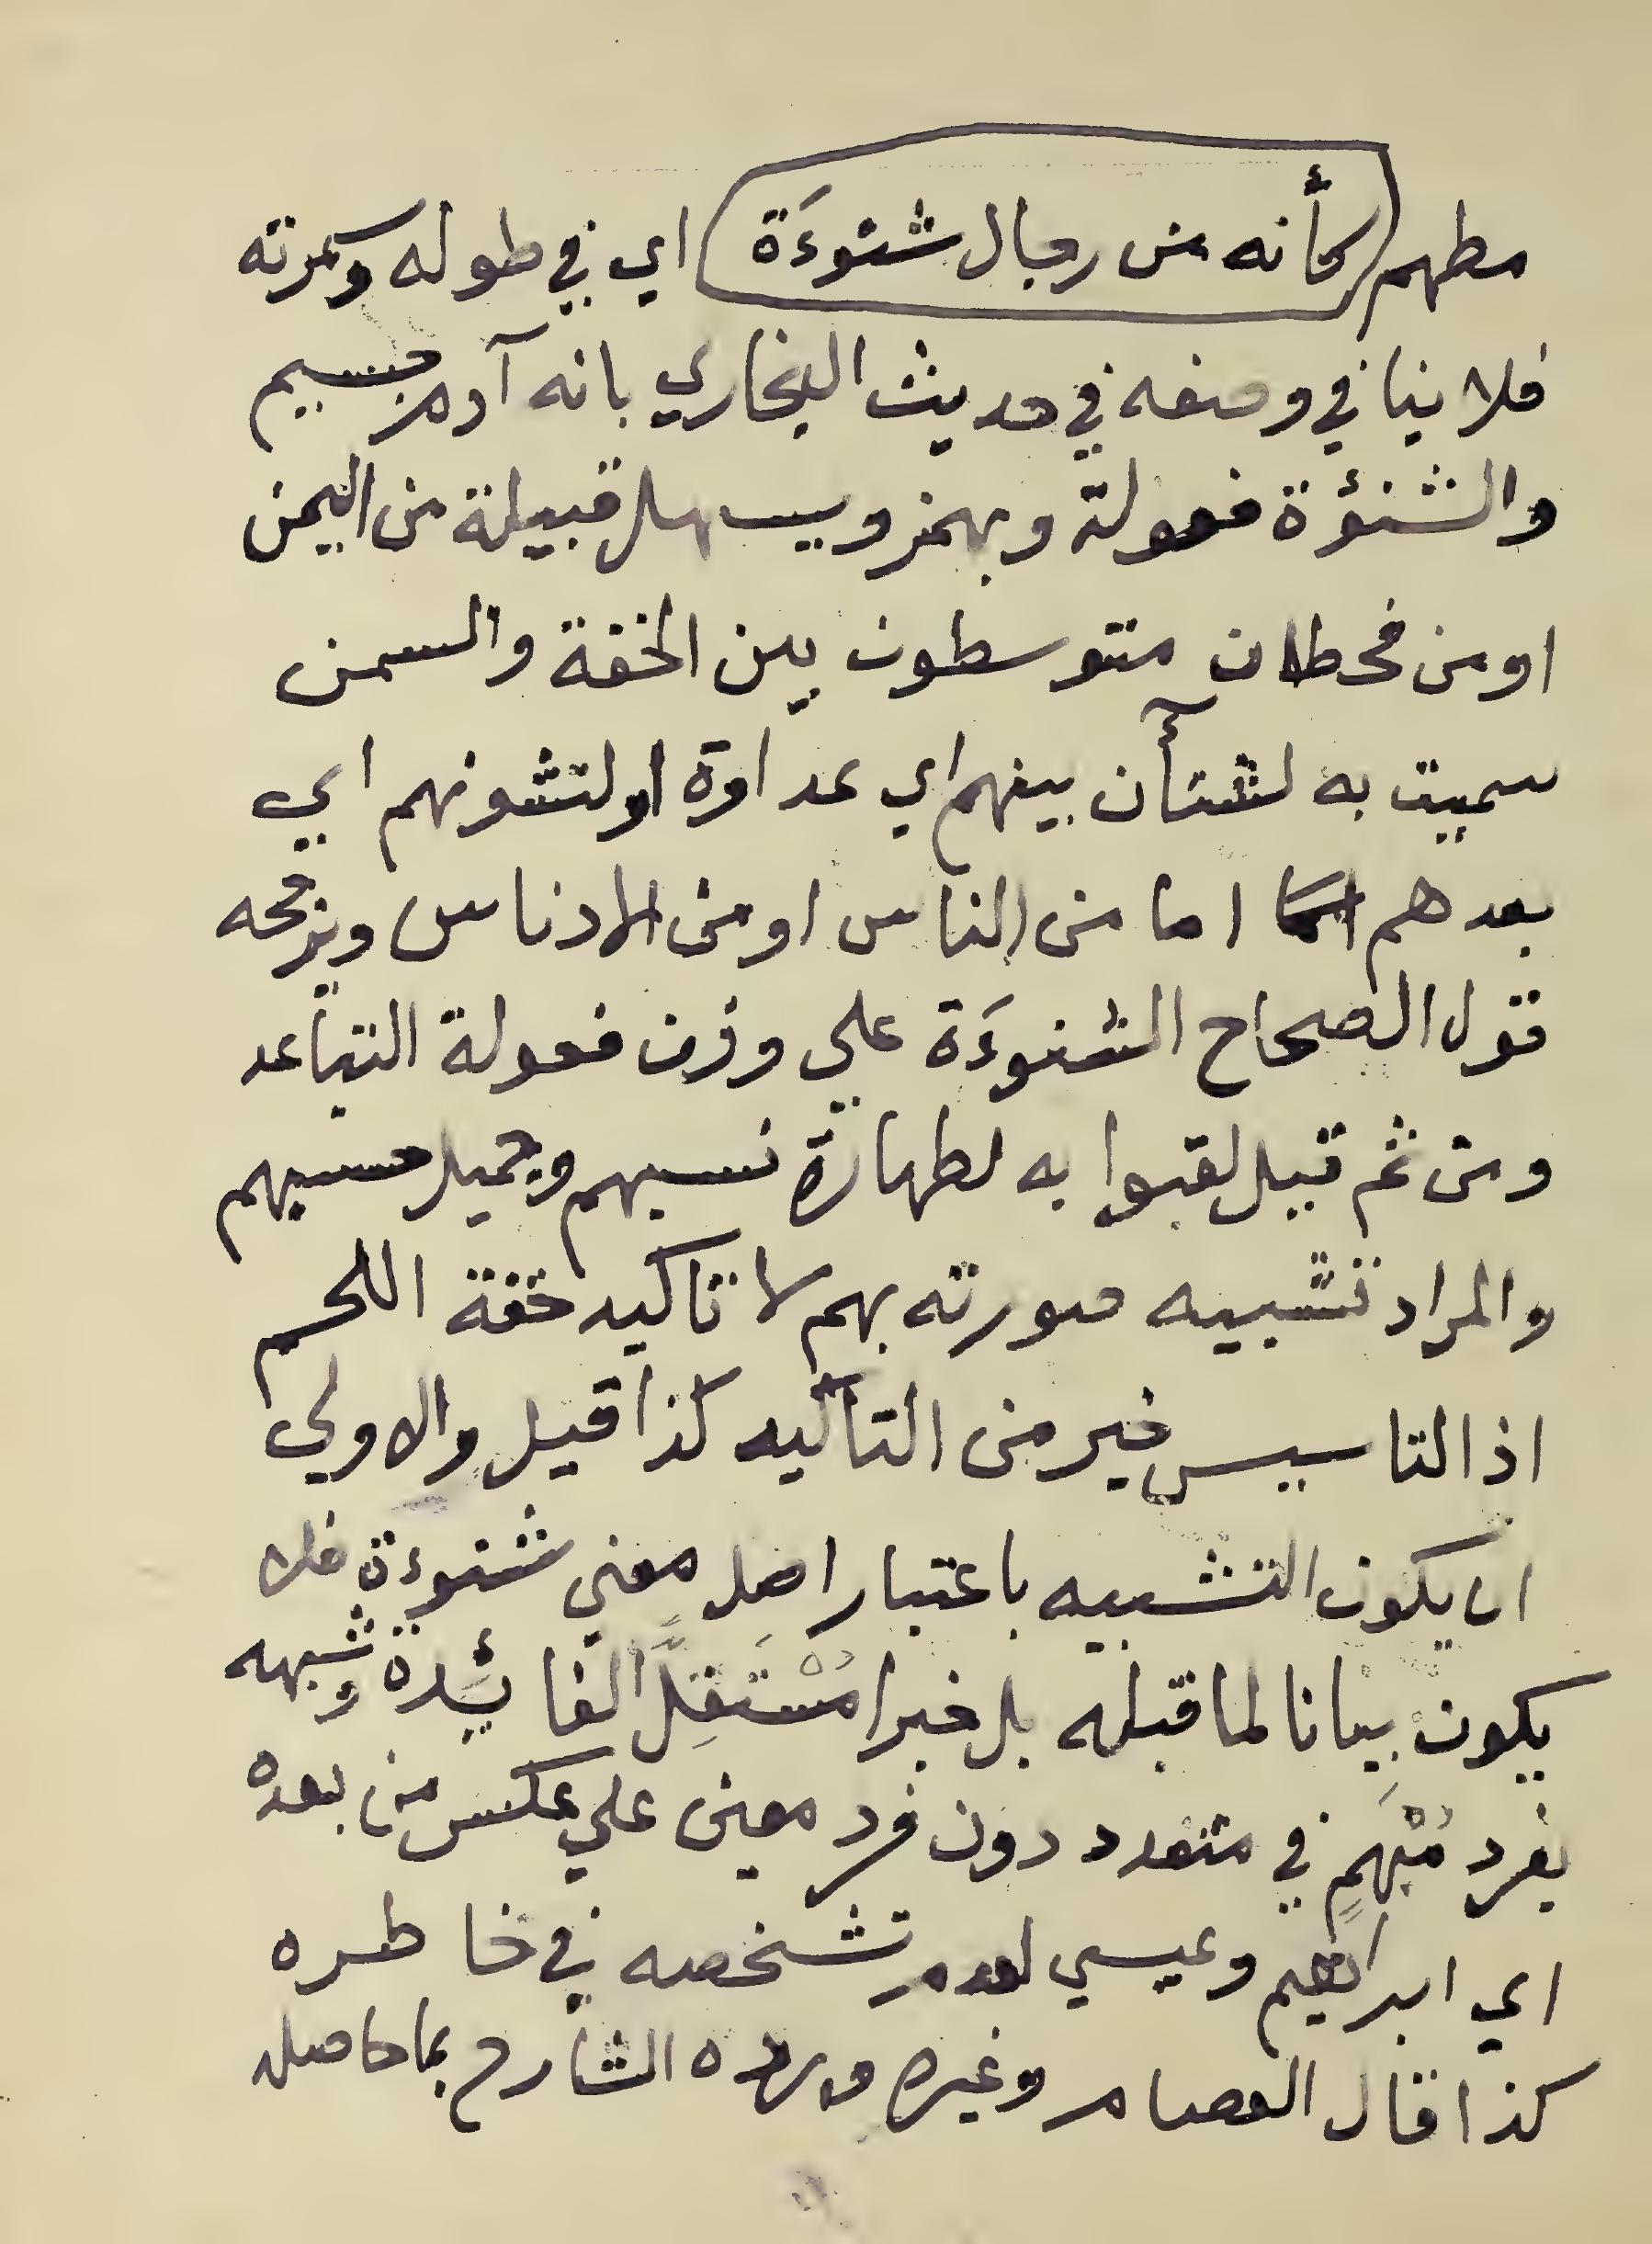 مطهم (كأنه من رجال شنوءَة) اي في طوله وسمرته
فلا ينافي وصفه في حديث البخاري بانه آدم جسيم
والشنؤة فعولة وبهمز ويسهل قبيلة من اليمن
او من قحطان متوسطون بين الخفة والسمن
سميت به لشنأن بينهم اي عداوة او لتشونهم اي
بعدهم اما من الناس او من الادناس ويرجحه
قول الصحاح الشنوءَة علي وزن فعولة التباعد
ومن ثم قيل لقبوا به لطهارة نسبهم وجميل حسبهم
والمراد تشبيه صورته بهم لا تاكيد خفة اللحم
اذ التاسيس خير من التأكيد كذا قيل والاولي
ان يكون التشبيه باعتبار اصل معني شنوءة فلا
يكون بيانا لما قبله بل خبرا مُسْتَقِلَّ الفائِدة وشبهه
بفرد مُبْهَمٍ في متعدد دون فرد معين علي عكس من بعده
اي ابراهيم وعيسي لعدم تشخصه في خاطره
كذا قال العصام وغيره ورده الشارح بما حاصله